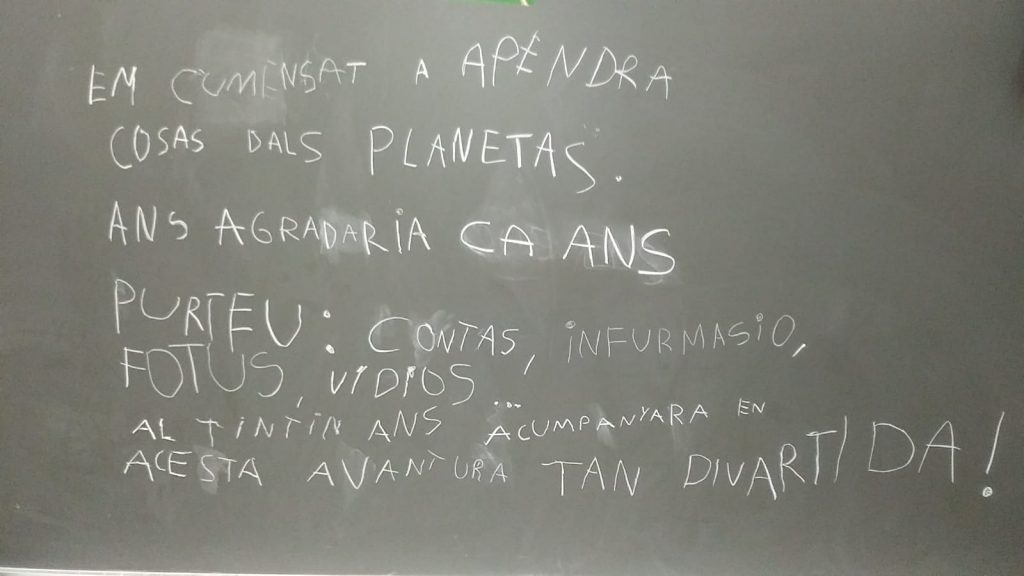 EM CUMENSAT A APENDRA
COSAS DALS PLANETAS.
ANS AGRADARiA CA ANS
PURTEU: CONTAS, iNFURMASiO,
FOTUS, ViDIOS...
AL TiNTiN ANS ACUMPANYARA EN
ACESTA AVANTURA TAN DIVARTIDA!